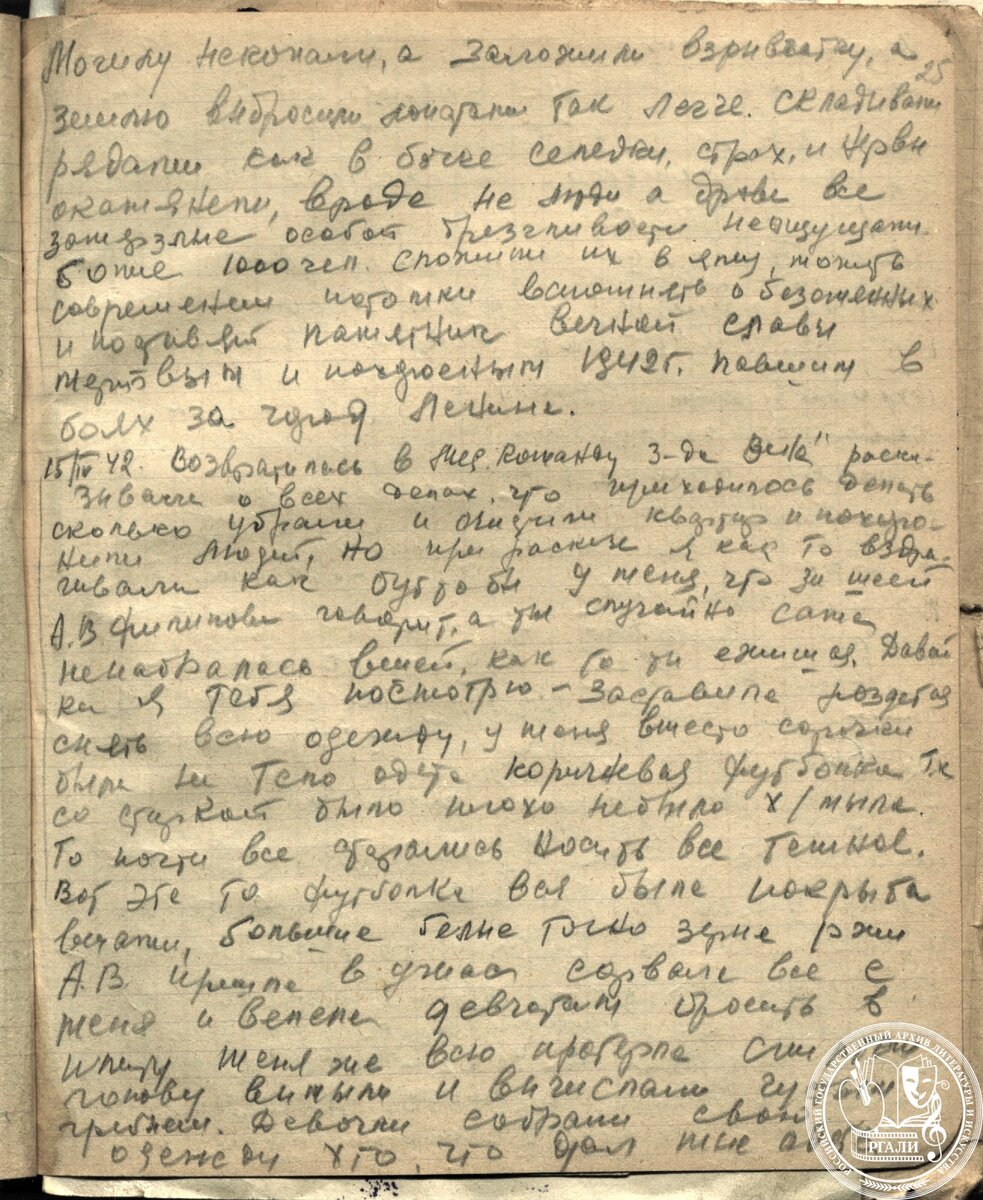 25
Могилу некопали, а заложили взривчатку, а
землю выбросили лопатами так легче. складивали
рядами как в бочке селедки, страх, и нервы
окаменели, вроде не люди а дрова все
замерзлые особой брезгливости неощущали.
более 1000 чел. сложили их в яму, может
современем потомки вспомнять о безоменных
и поставят памятник вечной славы
мертвым и похороненым 1942 г. павшим в
боях за город Ленина.
15/IV 42. Возвратилась в мед. команду з-да раска-
зивали о всех делах, что приходилось делать
сколько убрали и очистили квартир и похоро-
нили людей, но при расказе я как то вздра-
гивала как бутто бы у меня, что за шеей
А.В. Филипова говорит, а ты случайно сама
ненабралась вшей, как то ти ежишся. Давай
ка я тебя посмотрю – заставила роздется
снять всю одежду, у меня вместо сорочки
была на тело одета коричневая футболка т.к
со стиркой было плохо небыло х/мыла.
То почти все старались носить все темное.
Вот эта то футболка вся была покрыта
вшами, большие белые точно зерна ржи
А.В. пришла в ужас сорвала все с
меня и велела девчатам бросить в
плиту меня же всю протерла
голову вымыли и вичисали
гребнем. Девочки собрали свою
одежду кто, что дал мне
РОССИЙСКИЙ ГОСУДАРСТВЕННЫЙ АРХИВ ЛИТЕРАТУРЫ И ИСКУССТВА
РГАЛИ